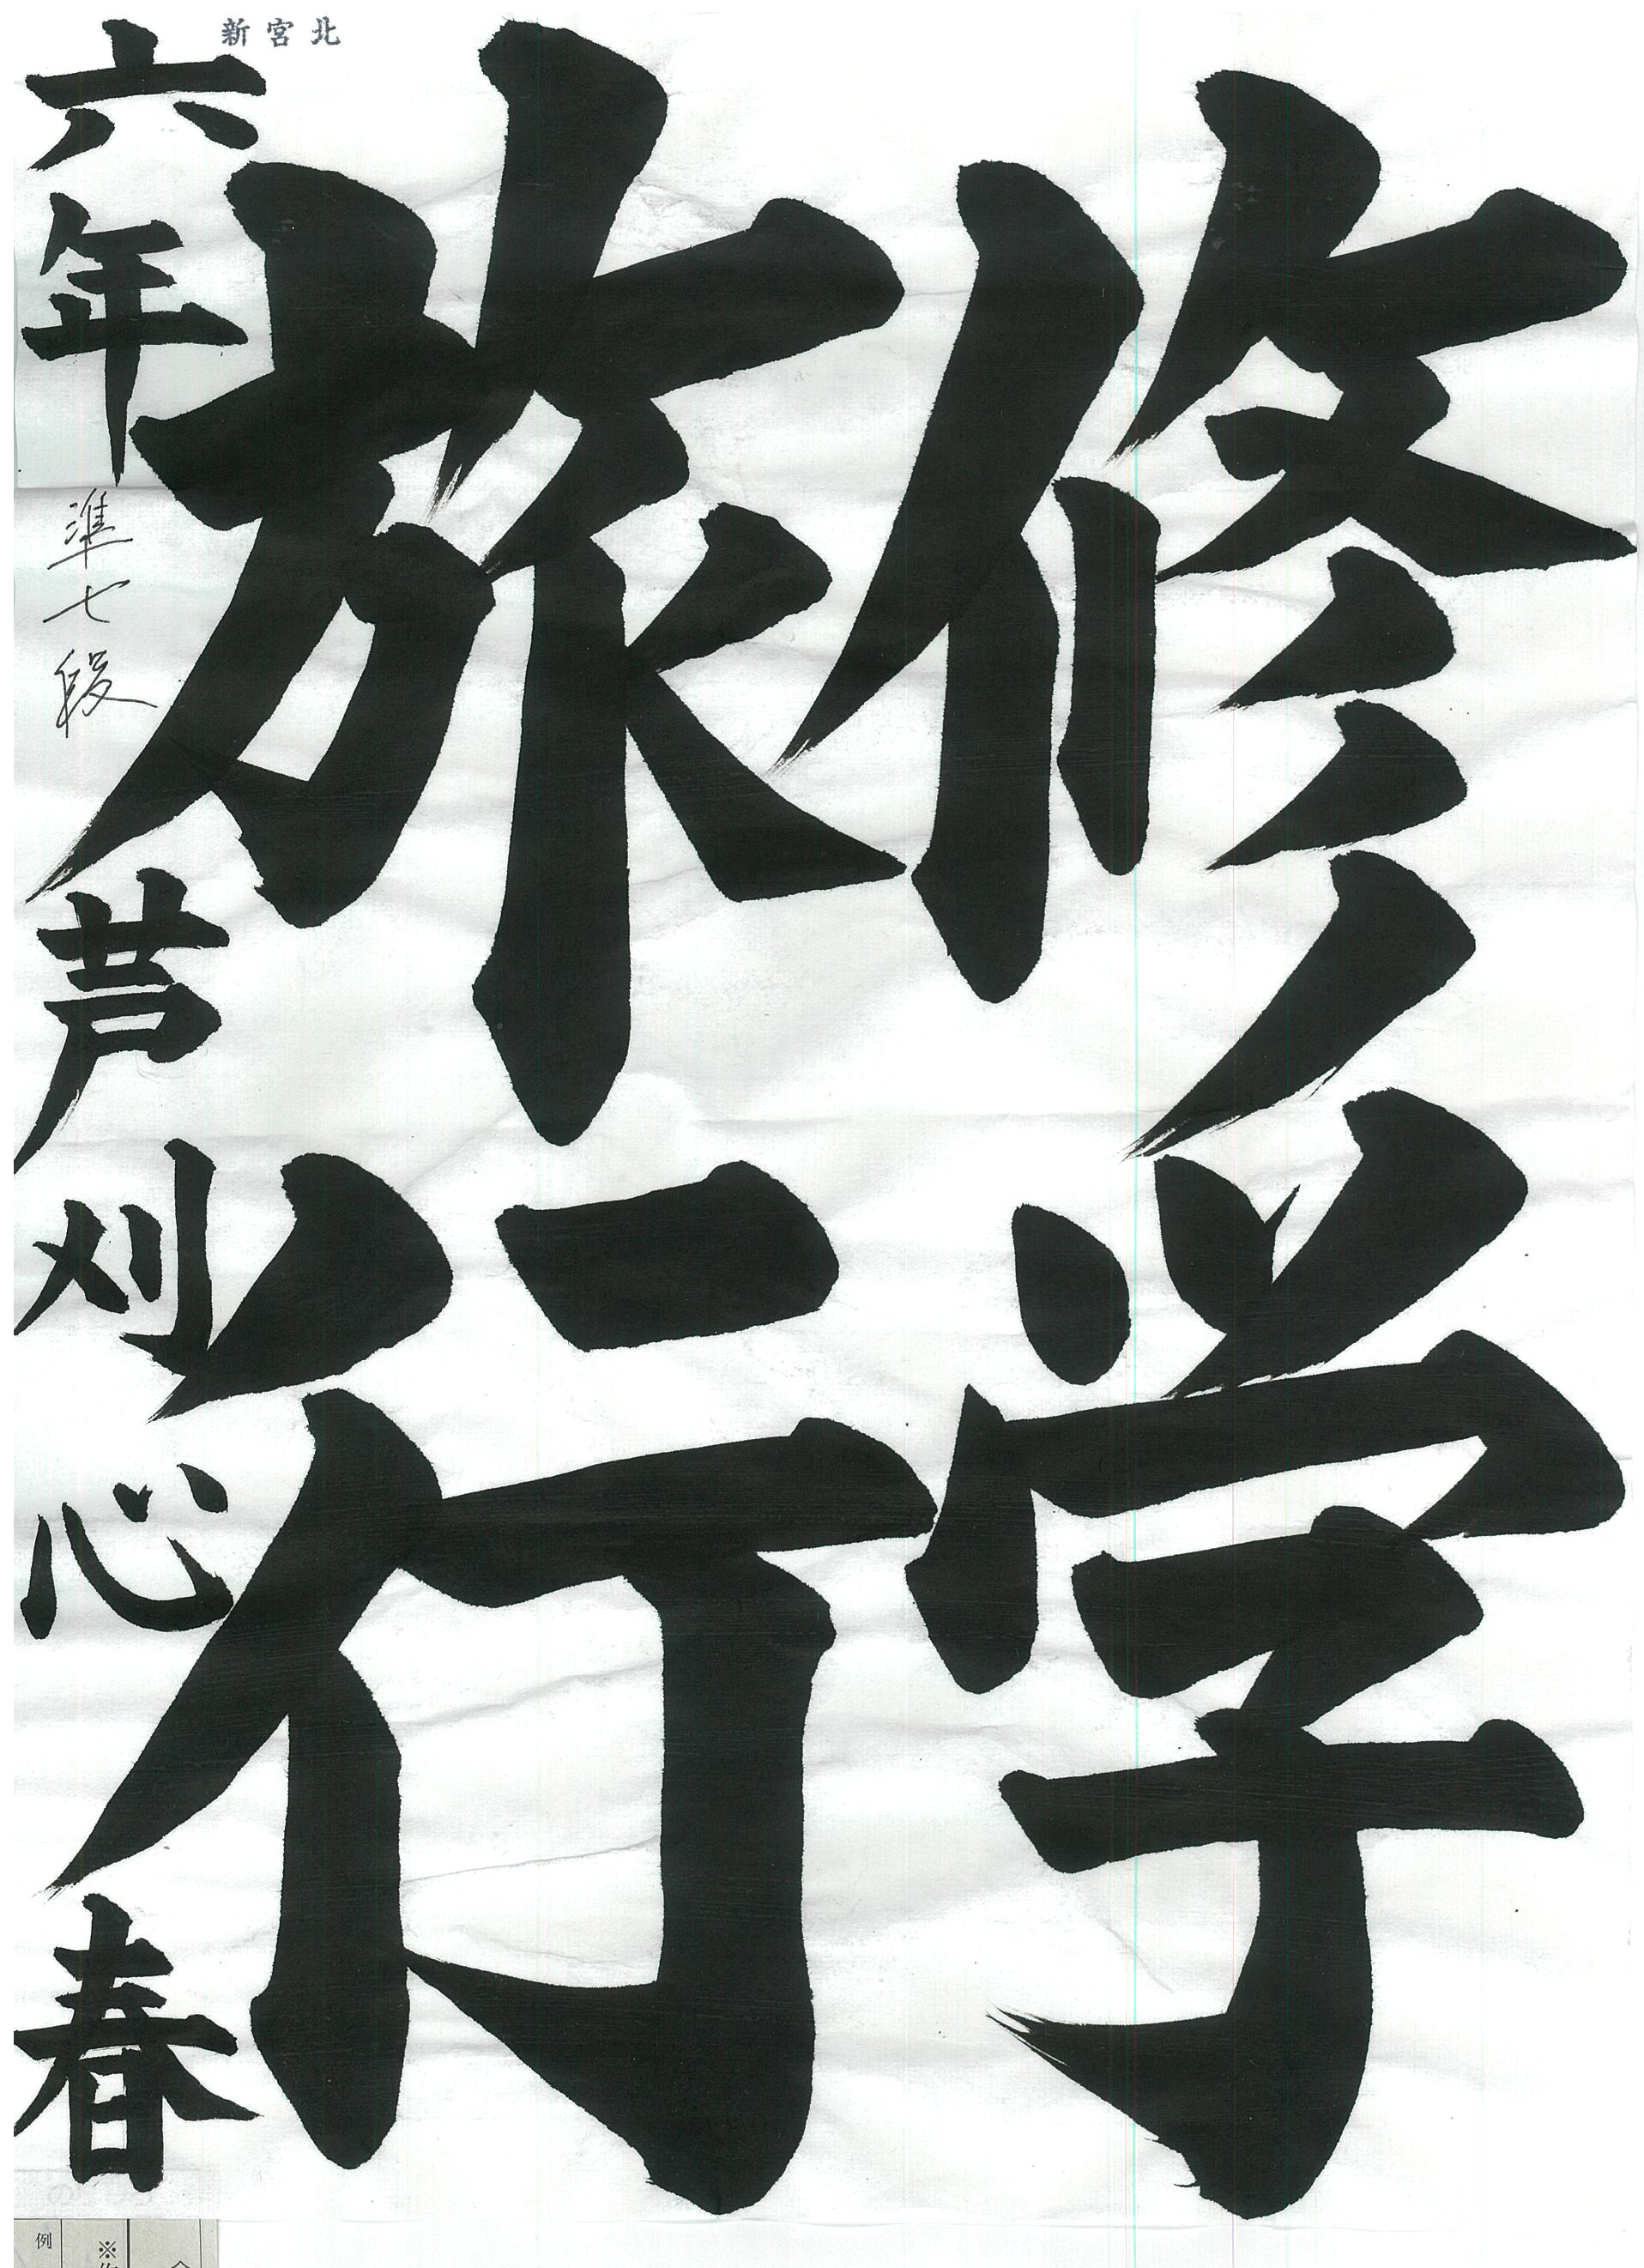 修学
旅行
六年 準七段 芦刈心春
新宮北
例
※